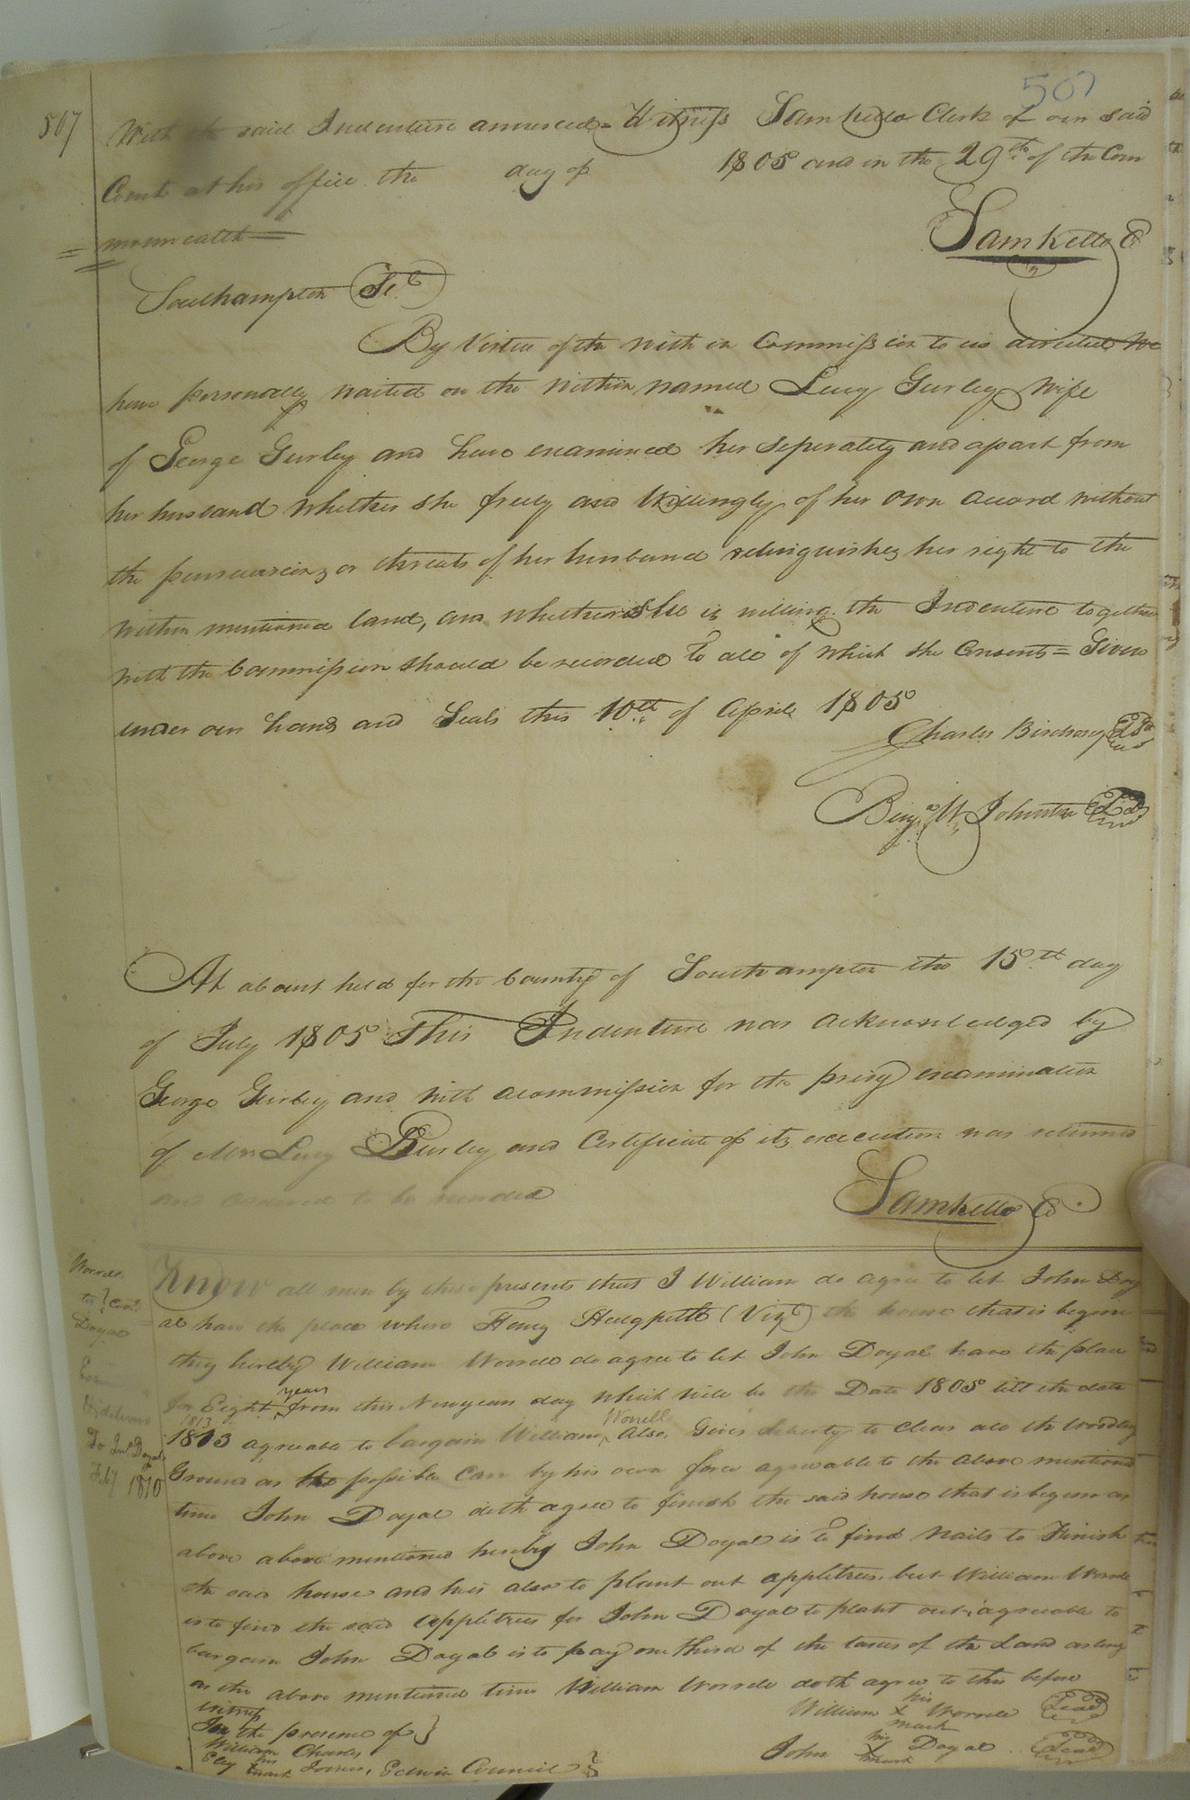 507
507
With the said Indenture annexed = Witness Sam Kello Clerk of our said
Court at his office the day of 1805 and in the 29th of the Com
monwealth
Sam Kello C
Southampton Sct
By Virtue of the with in Commission to us directed We
have personally waited on the within named Lucy Gurley Wife
of George Gurley and have examined her seperately and apart from
her husband Whether she freely and Willingly of her own accord without
the persuasions or threats of her husband relinquishes her right to the
within mentioned land, and whether She is willing the Indenture together
with the Commission should be recorded To all of which she Consents = Given
under our hands and Seals this 10th of April 1805
Charles Seal
Benja W Johnston Seal
At a Court held for the County of Southampton the 15th day
of July 1805 This Indenture was acknowledged by
George Gurley and with a commission for the privy examination
of Mrs Lucy Gurley and Certificate of its execution was returned
and ordered to be recorded
Sam Kello C
Worrell
to
Doyal
To Jno Doyal
Feby 1810
Know all men by these presents that I William do agree to let John Doy
al have the place where Henry Hedgpeth (Viz) the house that is begun
they hereby William Worrell do agree to let John Doyal have the place
for Eight years from this Newyears day which will be the Date 1805 till the date
1813
1813 agreable to bargain William Worrell Also Gives liberty to clear all the Woodley
Ground as the possible Can by his own force agreable to the above mentioned
time John Doyal doth agree to finish the said house that is begun as
above above mentioned hereby John Doyal is to find nails to Finish
the said house and he is also to plant out appletrees but William Worrell
is to find the said appletrees for John Doyal to plant out, agreable to
bargain John Doyal is to pay one third of the taxes of the Land as long
as the above mentioned time William Worrell doth agree to this before
witness
In the presence of
William Charles
Eley his mark Edwin Council
William his X mark Worrell Seal
John his X mark Doyal Seal